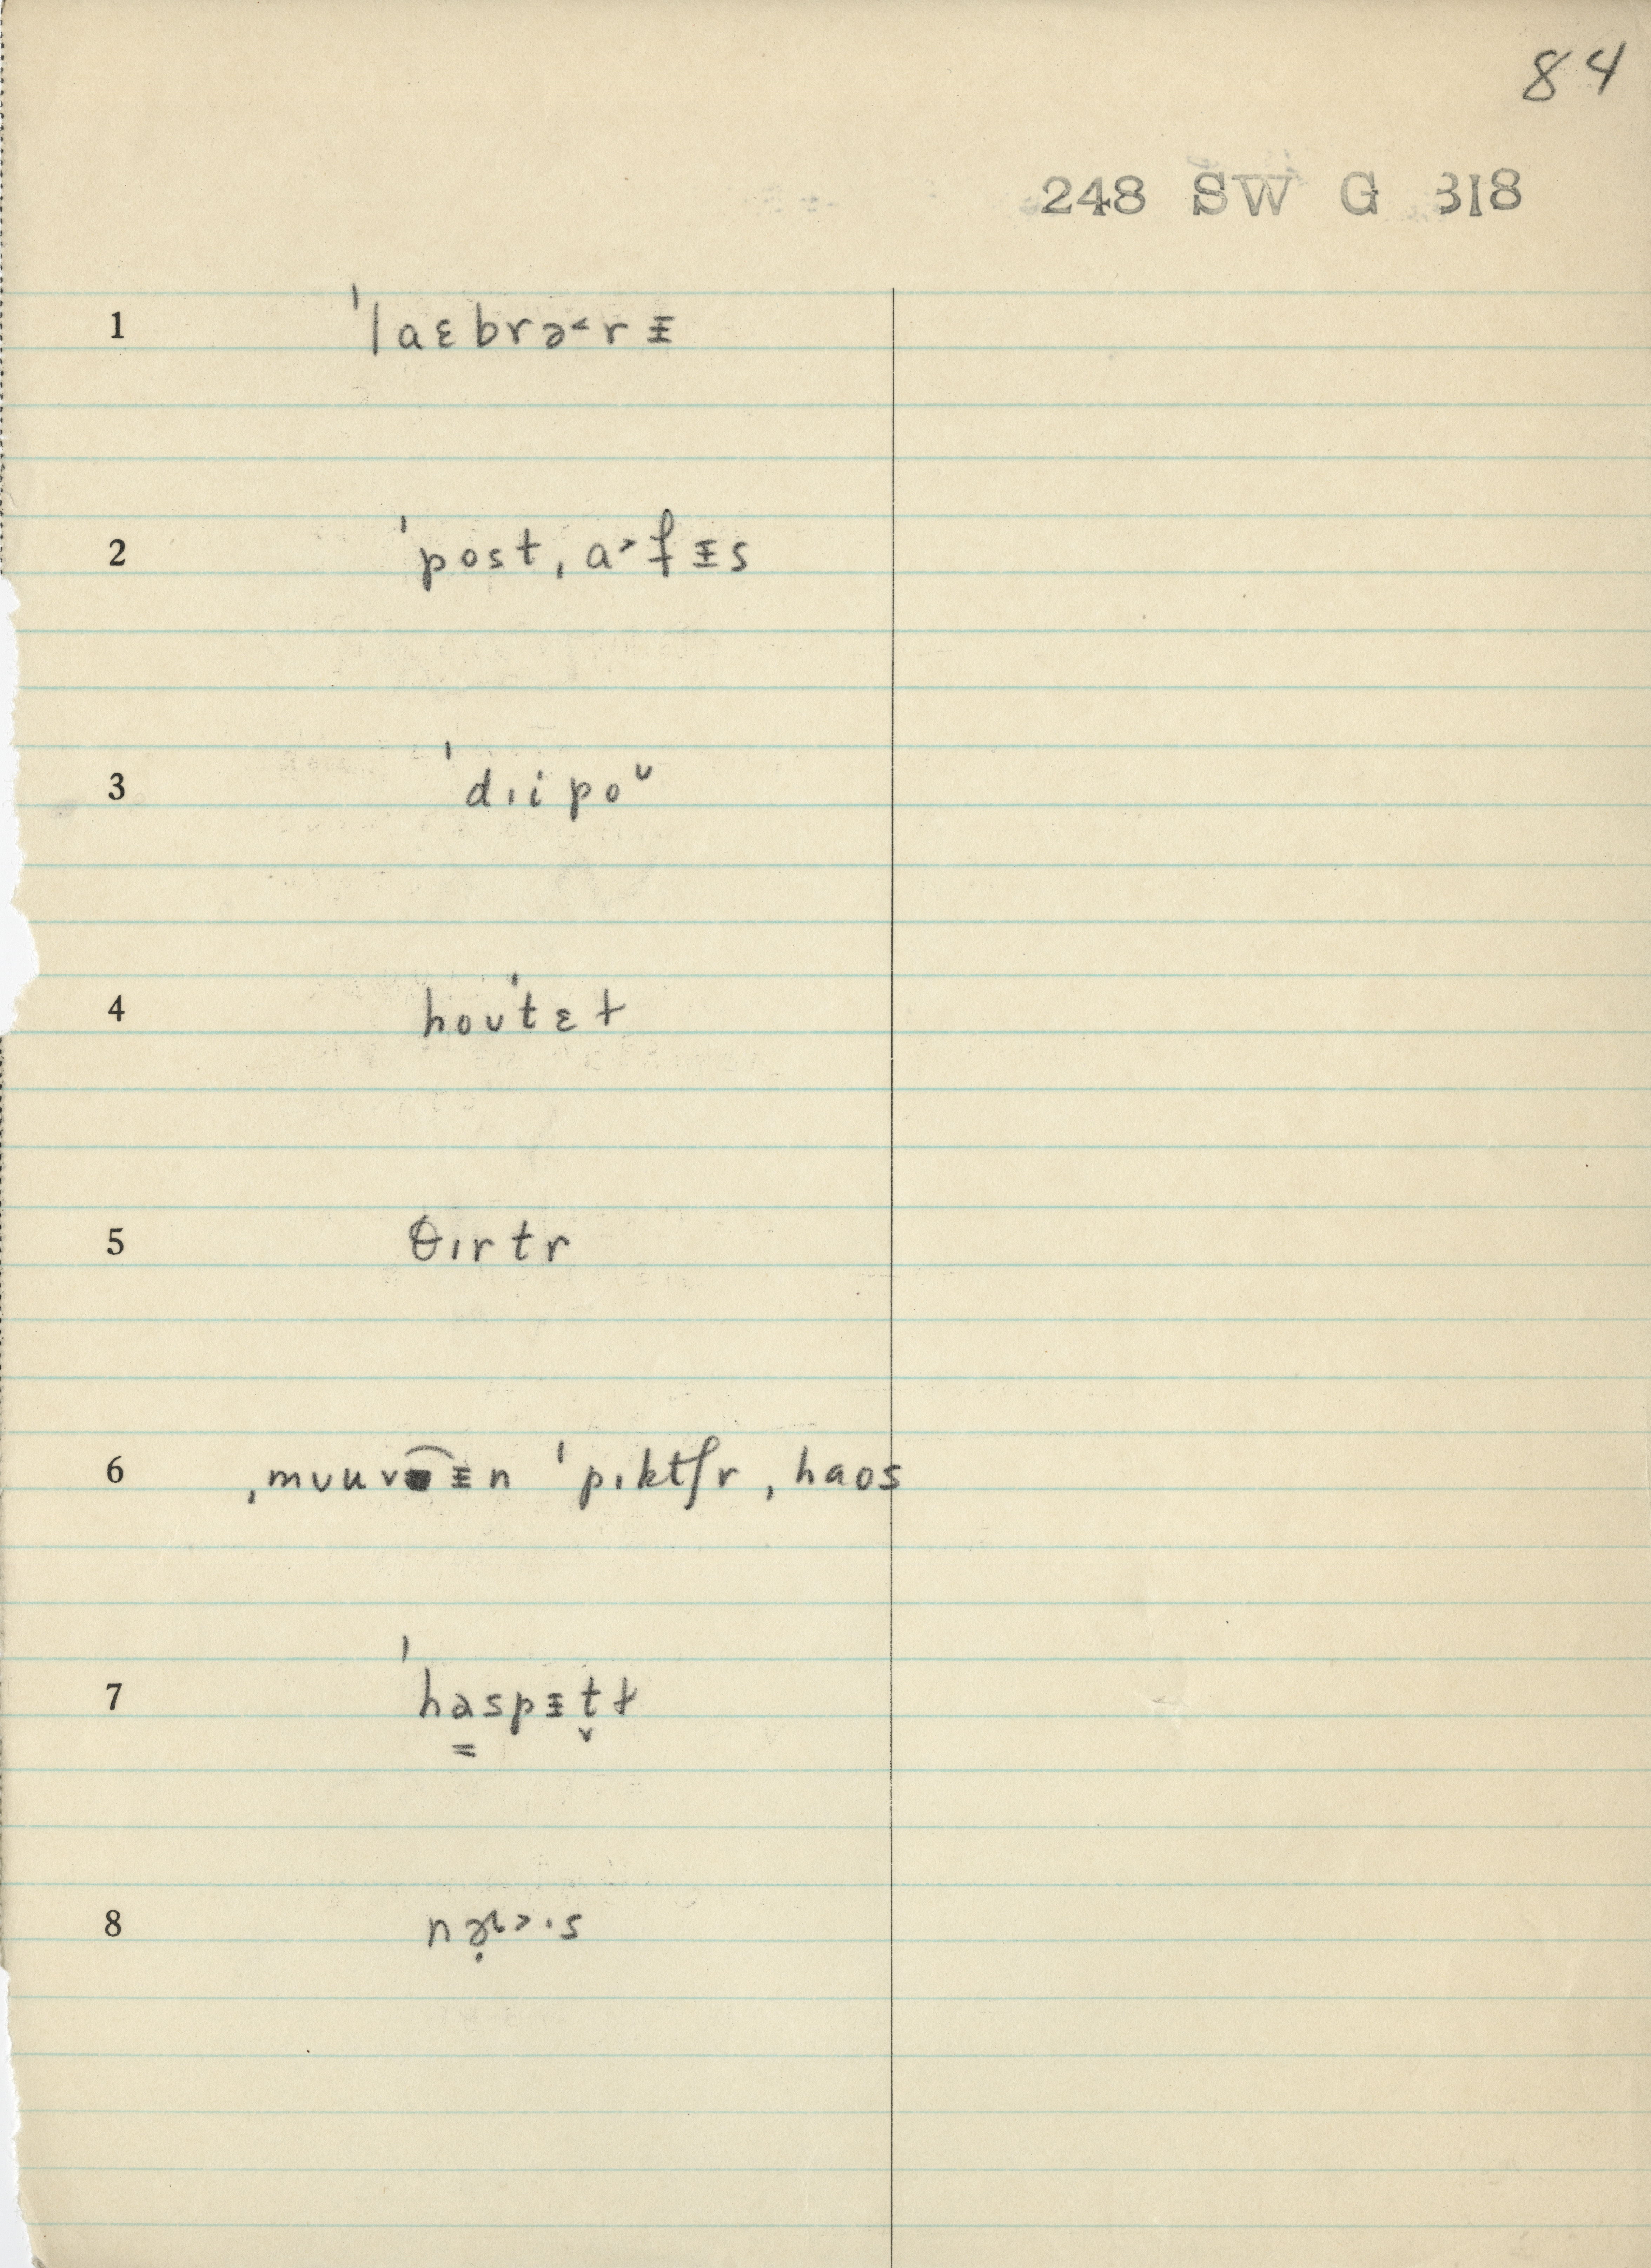 84
248 SW G 318
1 ˈlaɛbrə˂rᵻ
2 ˈpostˌa˃fᵻs
3 ˈdɪipoᶷ
4 hoʊˈtɛɫ
5 θɪrtr
6 ˌmʊuvᵻn ˈpɪktʃr ˌhaos
7 ˈha͇spᵻt̬ɫ